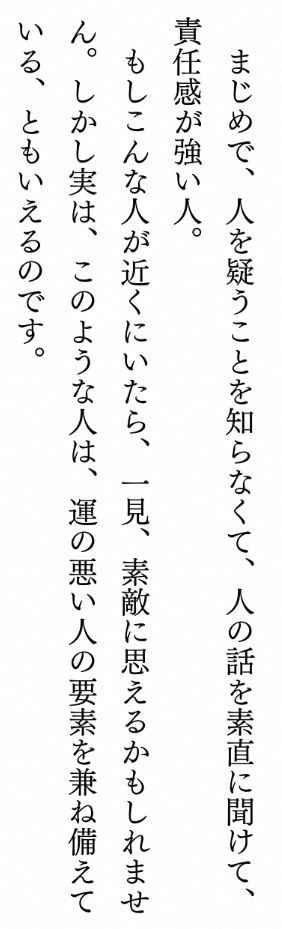 まじめで、人を疑うことを知らなくて、人の話を素直に聞けて、
責任感が強い人。
もしこんな人が近くにいたら、一見、素敵に思えるかもしれませ
ん。しかし実は、このような人は、運の悪い人の要素を兼ね備えて
いる、ともいえるのです。